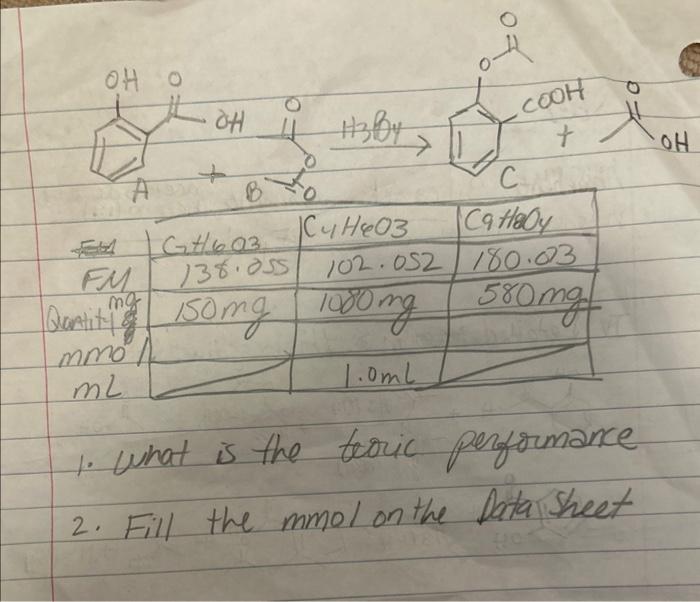 O
O
OH O
COOH
OH
O
H3BO4
O
+
OH
O
A + B O
C
C7H6O3 C4H6O3 C9H8O4
FM 138.055 102.052 180.03
Quantity mg 150mg 1080mg 580mg
mmol
mL 1.0mL
1. What is the teoric performance
2. Fill the mmol on the Data Sheet